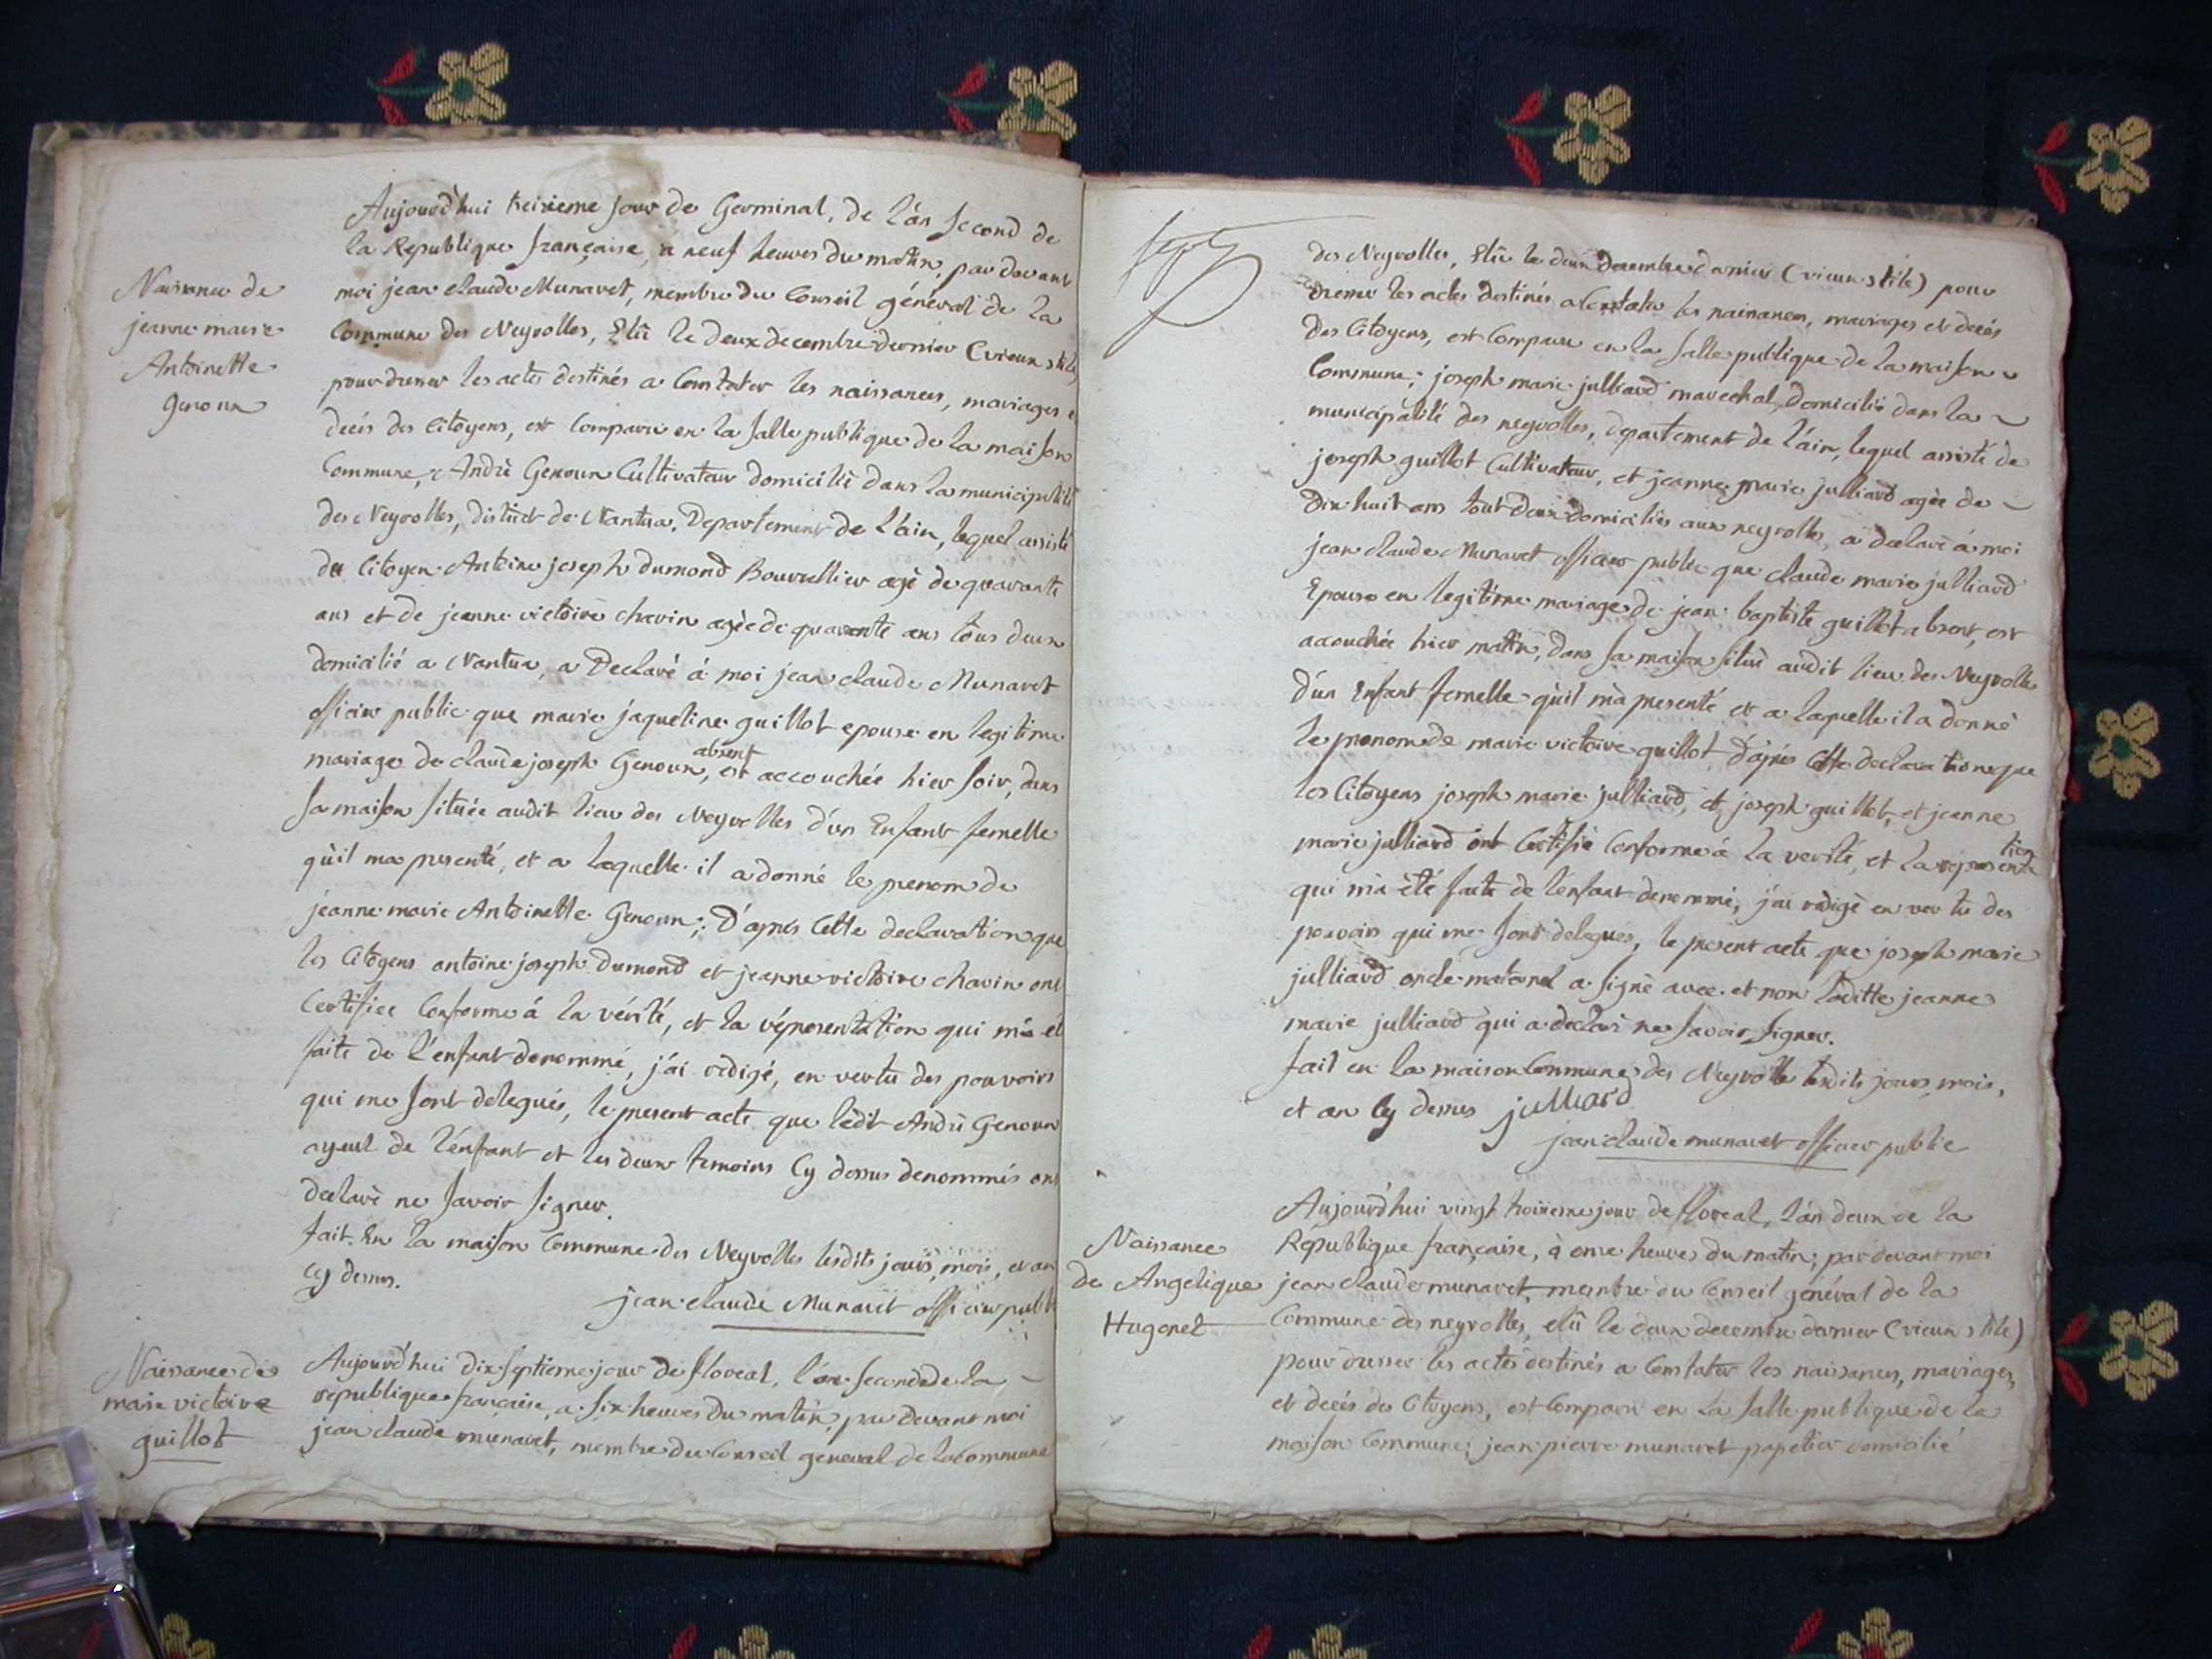 Aujourd'hui treizieme jour de Germinal, de l'an second de
la Republique française, a neuf heures du matin, par devant
moi jean claude Munaret, membre du Conseil général de la
Commune des Neyrolles, Elû le deux decembre dernier (vieux stile)
pour dresser les actes destinés a Constater les naissances, mariages e
decés des Citoyens, est comparu en la salle publique de la maison
Commune, André Genoux Cultivateur domicilié dans la municipalité
des Neyrolles, district de Nantua, Departement de l'ain, lequel assisté
du Citoyen Antoine joseph dumond Bourrellier agé de quarante
ans et de jeanne victoire chavin agée de quarente ans tous deux
domicilié a Nantua, a Declaré á moi jean claude Munaret
officier public que marie jaqueline guillot epouse en legitime
mariage de claude joseph Genoux, absent est accouchée hier soir, dans
sa maison située audit lieu des Neyrolles d'un Enfant femelle
qu'il ma presenté, et a laquelle il a donné le prenom de
jeanne marie Antoinette Genoux; D'aprés Cette declaration que
les Citoyens antoine joseph dumond et jeanne victoire chavin ont
Certifiee Conforme á la vérité, et la réprésentation qui m'a ét
faite de l'enfant denommé, j'ai redigé, en vertu des pouvoirs
qui me sont delegués, le present acte que ledit André Genoux
ayeul de l'énfant et les deux temoins Cy dessus denommés ont
declaré ne savoir signer.
fait En la maison Commune des Neyrolles lesdits jours, mois, et an
Cy dessus.
jean claude Munaret officier publi
Naissance de
jeanne marie
Antoinette
Genoux
Naissance de
marie victoire
guillot
Aujourd'hui dix septieme jour de floreal, l'an second de la
république française, a six heures du matin, par devant moi
jean claude munaret, membre du Conseil general de la Commune
des Neyrolles, Elû le deux decembre dernier (vieux stile) pour
dresser les actes destinés a Constater les naissances, mariages et decés
des Citoyens, est Comparu en la salle publique de la maison
Commune; joseph marie julliard marechal, domicilié dans la
municipalité des neyrolles, departement de l'ain, lequel assisté de
joseph guillot Cultivateur, et jeanne marie julliard agée de
dix huit ans tout deux domiciliés aux neyrolles, a declaré á moi
jean claude Munaret officier public que claude marie julliard
Epouse en legitime mariage de jean baptiste guillot absent, est
accouchée hier matin, dans sa maison situé audit lieu des Neyrolles
d'un Enfant femelle qu'il m'a presenté et a laquelle il a donné
le prenom de marie victoire guillot, D'aprés Cette declaration que
les Citoyens joseph marie julliard, et joseph guillot, et jeanne
marie julliard ont Certifié Conforme á la verité, et la representation
qui m'a été faite de l'enfant denommé, j'ai redigé en vertu des
pouvoirs qui me sont delegués, le present acte que joseph marie
julliard oncle maternel a signé avec et non laditte jeanne
marie julliard qui a declaré ne savoir signer.
fait en la maison Commune des Neyrolle lesdits jours mois,
et an Cy dessus julliard
jean claude munaret officier public
Naissance
de Angelique
Hugonet
Aujourd'hui vingt troisieme jour de floreal, l'an deux de la
République française, à onze heures du matin; par devant moi
jean claude munaret, membre du Conseil général de la
Commune des neyrolles, elû le deux decembre dernier (vieux stile)
pour dresser les actes destinés a Constater les naissances, mariages,
et decés des Citoyens, est Comparu en la salle publique de la
maison Commune; jean pierre munaret papetier domicilié